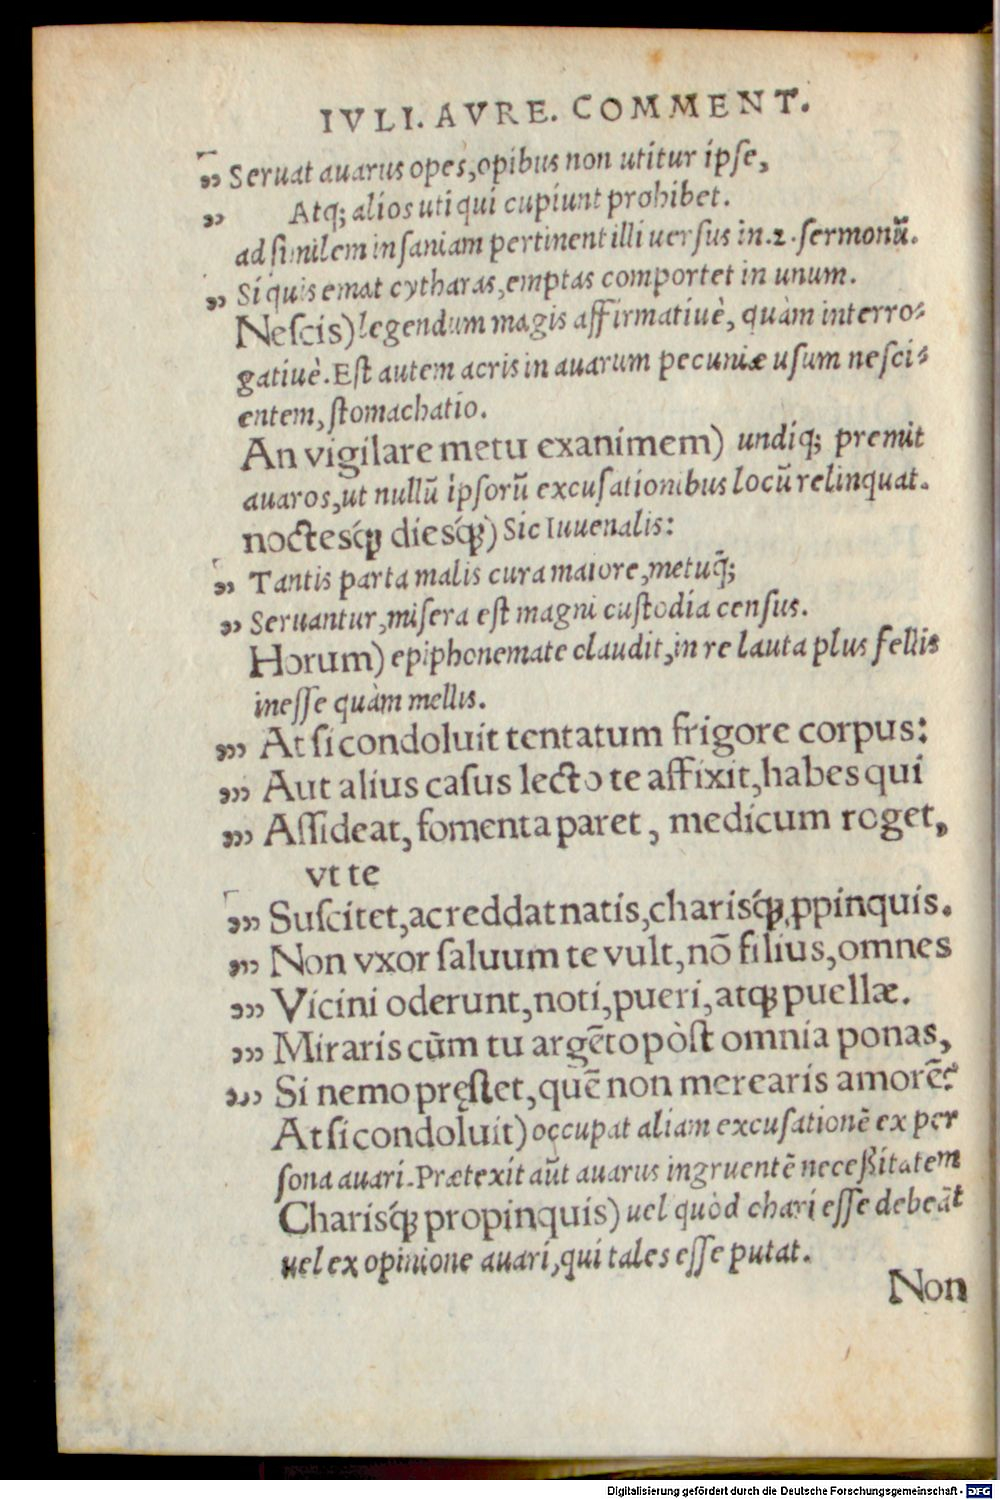 IVLI. AVRE. COMMENT.
„ Seruat auarus opes, opibus non utitur ipse,
„ Atq; alios uti qui cupiunt prohibet.
ad similem insaniam pertinent illi uersus in .2. sermonũ.
„ Si quis emat cytharas, emptas comportet in unum.
Nescis) legendum magis affirmatiuè, quàm interro-
gatiuè. Est autem acris in auarum pecuniæ usum nesci-
entem, stomachatio.
An vigilare metu exanimem) undiq; premit
auaros, ut nullũ ipsorũ excusationibus locũ relinquat.
noctesq́; diesq́;) Sic Iuuenalis:
„ Tantis parta malis cura maiore, metuq̃;
„ Seruantur, misera est magni custodia census.
Horum) epiphonemate claudit, in re lauta plus fellis
inesse quàm mellis.
„ At si condoluit tentatum frigore corpus:
„ Aut alius casus lecto te affixit, habes qui
„ Assideat, fomenta paret, medicum roget,
vt te
„ Suscitet, ac reddat natis, charisq́; ꝓpinquis.
„ Non vxor saluum te vult, nõ filius, omnes
„ Vicini oderunt, noti, pueri, atq; puellæ.
„ Miraris cùm tu argẽto pòst omnia ponas,
„ Si nemo pręstet, quẽ non merearis amorẽ?
At si condoluit) occupat aliam excusationẽ ex per
sona auari. Prætexit aũt auarus ingruentẽ neceßitatem
Charisq́; propinquis) uel quòd chari esse debeãt
uel ex opinione auari, qui tales esse putat.
Non
Digitalisierung gefördert durch die Deutsche Forschungsgemeinschaft - DFG